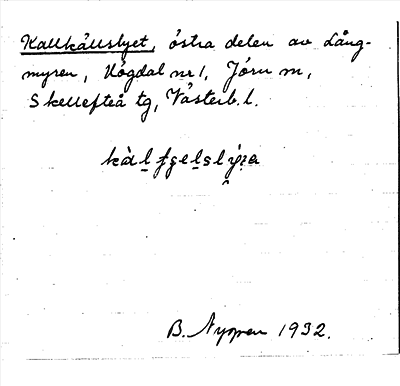 Kallkällslyet, östra delen av Lång-
myren, Högdal nr 1, Jörn m,
Skellefteå tg, Västerb. l.
B. Nyman 1932.